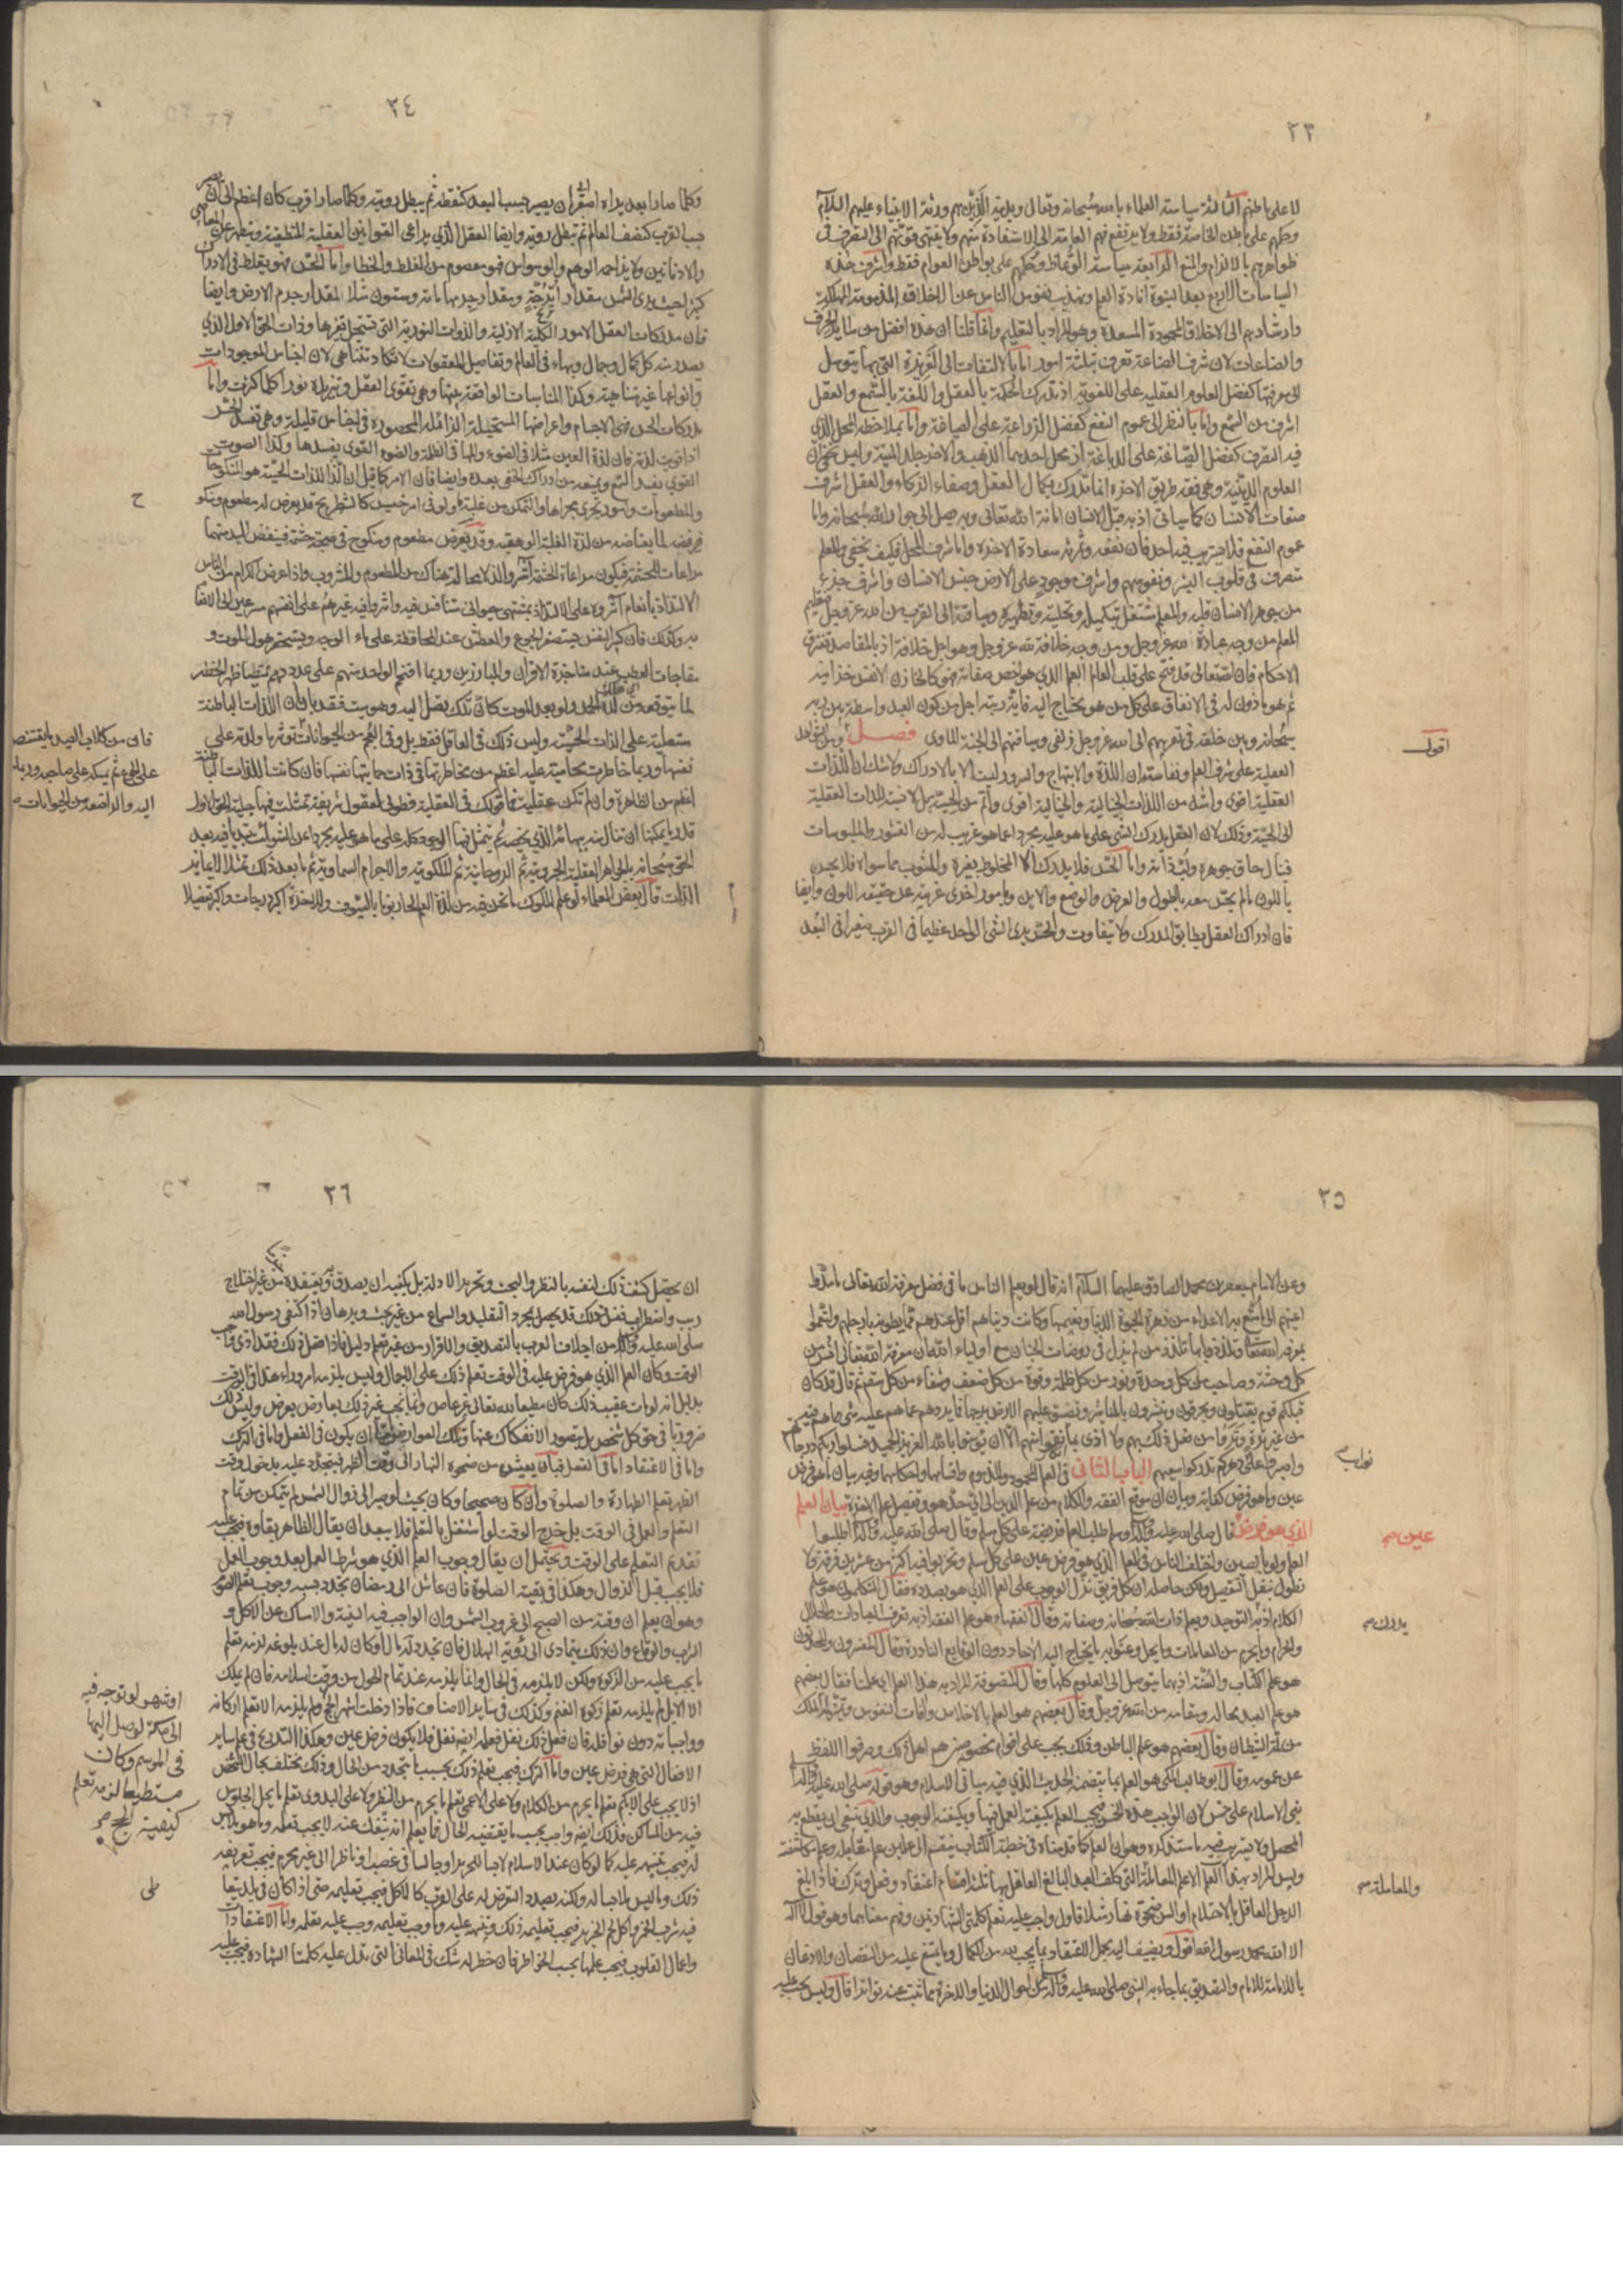 ٢٣
لا على باطنهم الثالثة سياسة العلماء بالله سبحانه وتعالى وبدينه الذين هم ورثة الانبياء عليهم السلام
وحكمهم على باطن الخاصة فقط ولا يرتفع فهم العامة الى الاستفادة منهم ولا ينتهى قوتهم الى التصرف فى
ظواهرهم بالالزام والمنع الرابعة سياسة الوعاظ وحكمهم على بواطن العوام فقط واشرف هذه
السياسات الاربع بعد النبوة افادة العلم وتهذيب نفوس الناس عن الاخلاق المذمومة المهلكة
وارشادهم الى الاخلاق المحمودة المسعدة وهو المراد بالتعليم وانما قلنا ان هذه افضل من سائر الحرف
والصناعات لان شرف الصناعة تعرف بثلثة امور اما بالالتفات الى الغريزة التى بها يتوصل
الى معرفتها كفضل العلوم العقلية على اللغوية اذ تدرك الحكمة بالعقل واللغة بالسمع والعقل
اشرف من السمع واما بالنظر الى عموم النفع كفضل الزراعة على الصياغة واما بملاحظة المحل الذي
فيه التصرف كفضل الصياغة على الدباغة اذ محل احدهما الذهب والاخر جلد الميتة وليس يخفى ان
العلوم الدينية وهى فقه طريق الاخرة انما تدرك بكمال العقل وصفاء الذكاء والعقل اشرف
صفات الانسان كما سياتى اذ به قبل الانسان امانة الله تعالى وبه يصل الى جوار الله سبحانه واما
عموم النفع فلا يستريب فيه احد فان نفعه وثمرته سعادة الاخرة واما شرف المحل فكيف يخفى والمعلم
متصرف فى قلوب البشر ونفوسهم واشرف موجود على الارض جنس الانسان واشرف جزء
من جوهر الانسان قلبه والمعلم مشتغل بتكميله وتحليته وتطهيره وسياقته الى القرب من الله عز وجل فتعليم
العلم من وجه عبادة الله عز وجل ومن وجه خلافة لله عز وجل وهو اجل خلافة اذ بالمقاصد تفترق
الاحكام فان الله تعالى قد فتح على قلب العالم العلم الذي هو اخص صفاته فهو كالخازن لانفس خزاينه
ثم هو ماذون له فى الانفاق على كل من هو محتاج اليه فاية رتبة اجل من كون العبد واسطة بين ربه
سبحانه وبين خلقه فى تقريبهم الى الله عز وجل زلفى وسياقتهم الى الجنة الماوى فصل ومن الشواهد
العقلية على شرف العلم ونفاسته ان اللذة والابتهاج والسرور ليست الا بالادراك ولا شك ان اللذات
العقلية اقوى واشد من اللذات الحسية والخيالية اقوى واتم من الحسية بل لا نسبة للذات العقلية
الى الحسية وذلك لان العقل يدرك الشئ على ما هو عليه مجردا عما هو غريب له من القشور والملبوسات
فينال حاق جوهره ولب ذاته واما الحس فلا يدرك الا المخلوط بغيره والمشوب بما سواه فلا يحس
باللون ما لم يحس معه بالطول والعرض والوضع والاين وامور اخرى غريبة عن حقيقة اللون وايضا
فان ادراك العقل يطابق المدرك ولا يتفاوت والحس يرى الشئ الواحد عظيما فى القرب صغيرا فى البعد
اقول
٢٤
وكلما صار ابعد يراه اصغر الى ان يصير بحسب البعد كنقطة ثم يبطل رويته وكلما صار اقرب كان اعظم الى ان يصير
بحسب القرب كنصف العالم ثم تبطل رويته وايضا العقل الذي يراعى القوانين العقلية المنطقية ويتطهر عن المعاصى
والادناس ولا يزاحمه الوهم والوسواس فهو معصوم من الغلط والخطا واما الحس فهو يغلط فى الادراك
كثيرا حيث يرى الشمس مقدار اترجة ومقدار جرمها مائة وستون مثلا لمقدار جرم الارض وايضا
فان مدركات العقل الامور الكلية الازلية والذوات النورية التى تستحيل تغيرها وذات الحق الاول الذي
يصدر منه كل كمال وجمال وبهاء فى العالم وتفاصيل المعقولات لا تكاد تتناهى لان اجناس الموجودات
وانواعها غير متناهية وكذا المناسبات الواقعة بينها وهى تقوى العقل وتزيده نورا كلما كثرت واما
مدركات الحس فهى الاجسام واعراضها المستحيلة الزائلة المحصورة فى اجناس قليلة وهى تفسد الحس
اذا قويت لذته فان لذة العين مثلا فى الضوء والمها فى الظلمة والضوء القوى يفسدها وكذا الصوت
القوى يفسد السمع ويمنعه من ادراك الخفى بعده وايضا فان الامر كما قيل ان الذ اللذات الحسية هو المنكوحات
والمطعومات وامور تجرى مجراها والمتمكن من غلبة ما ولو فى امر خسيس كالشطرنج قد يعرض له مطعوم ومنكوح
فيرفضه لما يعتاضه من لذة الغلبة الوهمية وقد يعرض مطعوم ومنكوح فى صحبة حشمه فينفض اليد منهما
مراعات للحشمة فيكون مراعاة الحشمة آثر والذ لا محالة هناك من المطعوم والمشروب واذا عرض للكرام من الناس
الالتذاذ بانعام آثروه على الالتذاذ بمشتهى حيوانى متنافس فيه واثروا فيه غيرهم على انفسهم مسرعين الى الانعام
به وكذلك فان كبير النفس يستصغر الجوع والعطش عند المحافظة على ماء الوجه ويستحقر هول الموت و
مفاجات العطب عند مناجزة الاقران والمبارزين وربما اقتحم الواحد منهم على عدد دهم ممتطيا ظهر الخطر
لما يتوقعه من لذة الحمد ولو بعد الموت كان تلك يصل اليه وهو ميت فقد بان ان اللذات الباطنة
مستعلية على اللذات الحسية وليس ذلك فى العاقل فقط بل وفى العجم من الحيوانات تؤثر ما ولدته على
نفسها وربما خاطرت محامية عليه اعظم من مخاطرتها فى ذات حمايتها نفسها فان كانت اللذات الباطنة
اعظم من الظاهرة وان لم تكن عقلية فما قولك فى العقلية فطوبى لعقول شريفة تمثلت فيها جلية الحق الاول
قدر ما يمكنها ان تنال منه ببهائه الذي يخصه ثم يتمثل فيها الوجود كله على ما هو عليه مجردا عن الشوائب مبتديا فيه بعد
الحق سبحانه بالجواهر العقلية الجبروتية ثم الروحانية ثم الملكوتية والاجرام السماوية ثم ما بعد ذلك تمثلا لا يمايز
الذات قال بعض العلماء لو علم الملوك ما نحن فيه من لذة العلم لحاربونا بالسيوف وللاخرة اكبر درجات واكبر تفضيلا
ح
فان من كلاب الصيد ما يقتنص
على الجوع ثم يمسكه على صاحبه وربما حمله
اليه والراضعة من الحيوانات
٢٥
وعن الامام جعفر بن محمد الصادق عليهما السلام انه قال لو يعلم الناس ما فى فضل معرفة الله تعالى ما مدوا
اعينهم الى ما متع به الاعداء من زهرة الحيوة الدنيا ونعيمها وكانت دنياهم اقل عندهم مما يطونه بارجلهم ولنعموا
بمعرفة الله تعالى وتلذذوا بها تلذذ من لم يزل فى روضات الجنان مع اولياء الله ان معرفة الله تعالى انس من
كل وحشة وصاحب من كل وحدة ونور من كل ظلمة وقوة من كل ضعف وشفاء من كل سقم ثم قال قد كان
قبلكم قوم يقتلون ويحرقون وينشرون بالمناشير وتضيق عليهم الارض برحبها فما يردهم عما هم عليه شئ مما هم فيه
من غير ترة وتروا من فعل ذلك بهم ولا اذى بما نقموا منهم الا ان يؤمنوا بالله العزيز الحميد فسلوا ربكم درجاتهم
واصبروا على دهركم تدركوا سعيهم الباب الثانى فى العلم المحمود والمذموم واقسامهما واحكامهما وفيه بيان ما هو فرض
عين وما هو فرض كفاية وبيان ان موقع الفقه والكلام من علم الدين الى اى حد هو وتفضيل علم الاخرة بيان العلم
الذي هو فرض قال صلى الله عليه وآله وسلم طلب العلم فريضة على كل مسلم وقال صلى الله عليه وآله اطلبوا
العلم ولو بالصين واختلف الناس فى العلم الذي هو فرض عين على كل مسلم وتحزبوا فيه اكثر من عشرين فرقة ولا
نطول بنقل التفصيل ولكن حاصله ان كل فريق نزل الوجوب على العلم الذي هو بصدده فقال المتكلمون هو علم
الكلام اذ به التوحيد ويعلم ذات الله سبحانه وصفاته وقال الفقهاء هو علم الفقه اذ به تعرف العبادات والحلال
والحرام وما يحرم من المعاملات وما يحل وعنوا به ما يحتاج اليه الآحاد دون الوقايع النادرة وقال المفسرون والمحدثون
هو علم الكتاب والسنة اذ بهما يتوصل الى العلوم كلها وقال المتصوفة المراد به هذا العلم اى علمنا فقال بعضهم
هو علم العبد بحاله ومقامه من الله عز وجل وقال بعضهم هو العلم بالاخلاص وافات النفوس وتمييز لمة الملك
من لمة الشيطان وقال بعضهم هو علم الباطن وذلك يجب على اقوام مخصوصين هم اهل ذلك وصرفوا اللفظ
عن عمومه وقال ابو طالب المكى هو العلم بما يتضمنه الحديث الذي فيه مبانى الاسلام وهو قوله صلى الله عليه وآله
بنى الاسلام على خمس لان الواجب هذه الخمس فيجب العلم بكيفية العمل فيها وبكيفية الوجوب والذي ينبغى ان يقطع به
المحصل ولا يستريب فيه ما سنذكره وهو ان العلم كما قدمناه فى خطبة الكتاب ينقسم الى علمين علم معاملة وعلم مكاشفة
وليس المراد بهذا العلم الا علم المعاملة التى كلف العبد البالغ العاقل بها ثلثة اقسام اعتقاد وفعل وترك فاذا بلغ
الرجل العاقل بالاحتلام او السن ضحوة نهار مثلا فاول واجب عليه تعلم كلمتى الشهادتين وفهم معناهما وهو قول لا اله
الا الله محمد رسول الله اقول ويضيف اليه مجمل الاعتقاد بما يجب لله من الكمال وما يمتنع عليه من النقصان والاذعان
بالامامة للامام والتصديق بما جاء به النبى صلى الله عليه وآله من احوال الدنيا والاخرة مما ثبت عنه تواترا قال وليس يجب عليه
نوايب صح
عين صح
يدرك صح
والمعاملة صح
٢٦
ان يحصل كشف ذلك لنفسه بالنظر والبحث وتحرير الادلة بل يكفيه ان يصدق به ويعتقده من غير اختلاج
ريب واضطراب نفس وذلك قد يحصل بمجرد التقليد والسماع من غير بحث وبرهان اذ اكتفى رسول الله
صلى الله عليه وآله من اجلاف العرب بالتصديق والاقرار من غير تعلم دليل فاذا فعل ذلك فقد ادى واجب
الوقت وكان العلم الذي هو فرض عليه فى الوقت تعلم ذلك على الاجمال وليس يلزمه امر وراء هذا فى الوقت
بدليل انه لو مات عقيب ذلك كان مطيعا لله تعالى غير عاص وانما يجب غير ذلك بعوارض يعرض وليس ذلك
ضروريا فى حق كل شخص بل يتصور الانفكاك عنها وتلك العوارض اما ان يكون فى الفعل واما فى الترك
واما فى الاعتقاد اما فى الفعل فبان يعيش من ضحوة النهار الى وقت الظهر فيتجدد عليه بدخول وقت
الظهر تعلم الطهارة والصلوة وان كان صحيحا وكان بحيث لو صبر الى زوال الشمس لم يتمكن من تمام
التعلم والعمل فى الوقت بل يخرج الوقت لو اشتغل بالتعلم فلا يبعد ان يقال الظاهر بقاؤه فيجب عليه
تقديم التعلم على الوقت ويحتمل ان يقال وجوب العلم الذي هو شرط العمل بعد وجوب العمل
فلا يجب قبل الزوال وهكذا فى بقية الصلوة فان عاش الى رمضان تجدد بسببه وجوب تعلم الصوم
وهو ان يعلم ان وقته من الصبح الى غروب الشمس وان الواجب فيه النية والامساك عن الاكل و
الشرب والوقاع وان ذلك يتمادى الى رؤية الهلال فان تجدد له مال او كان له مال عند بلوغه لزمه تعلم
ما يجب عليه من الزكوة ولكن لا يلزمه فى الحال وانما يلزمه عند تمام الحول من وقت اسلامه فان لم يملك
الا الابل لم يلزمه تعلم زكوة الغنم وكذلك فى ساير الاصناف فاذا دخلت اشهر الحج ولم يلزمه الا تعلم اركانه
وواجباته دون نوافله فان فعل ذلك نفل فعلمه ايضا نفل فلا يكون فرض عين وهكذا التدريج فى علم ساير
الافعال التى هى فرض عين واما الترك فيجب تعلم ذلك بحسب ما يتجدد من الحال وذلك يختلف بحال الشخص
اذ لا يجب على الابكم تعلم ما يحرم من الكلام ولا على الاعمى تعلم ما يحرم من النظر ولا على البدوى تعلم ما يحل الجلوس
فيه من المساكن فذلك ايضا واجب بحسب ما يقتضيه الحال فما يعلم انه ينفك عنه لا يجب تعلمه وما هو ملابس
له فيجب تنبيهه عليه كما لو كان عند الاسلام لابسا للحرير او جالسا فى غصب او ناظرا الى غير محرم فيجب تعريفه
ذلك وما ليس ملابسا له ولكنه بصدد التعرض له على القرب كالاكل فيجب تعليمه حتى اذا كان فى بلد يتعاطى
فيه شرب الخمر واكل لحم الخنزير فيجب تعليمه ذلك وتنبيهه عليه وما وجب تعليمه وجب عليه تعلمه واما الاعتقادات
واعمال القلوب فيجب علمها بحسب الخواطر فان خطر له شك فى المعانى التى تدل عليه كلمتا الشهادة فيجب عليه
او شهر لو توجه فيه
الى مكة لوصل اليها
فى الموسم وكان
مستطيعا لزمه تعلم
كيفية الحج صح
طى